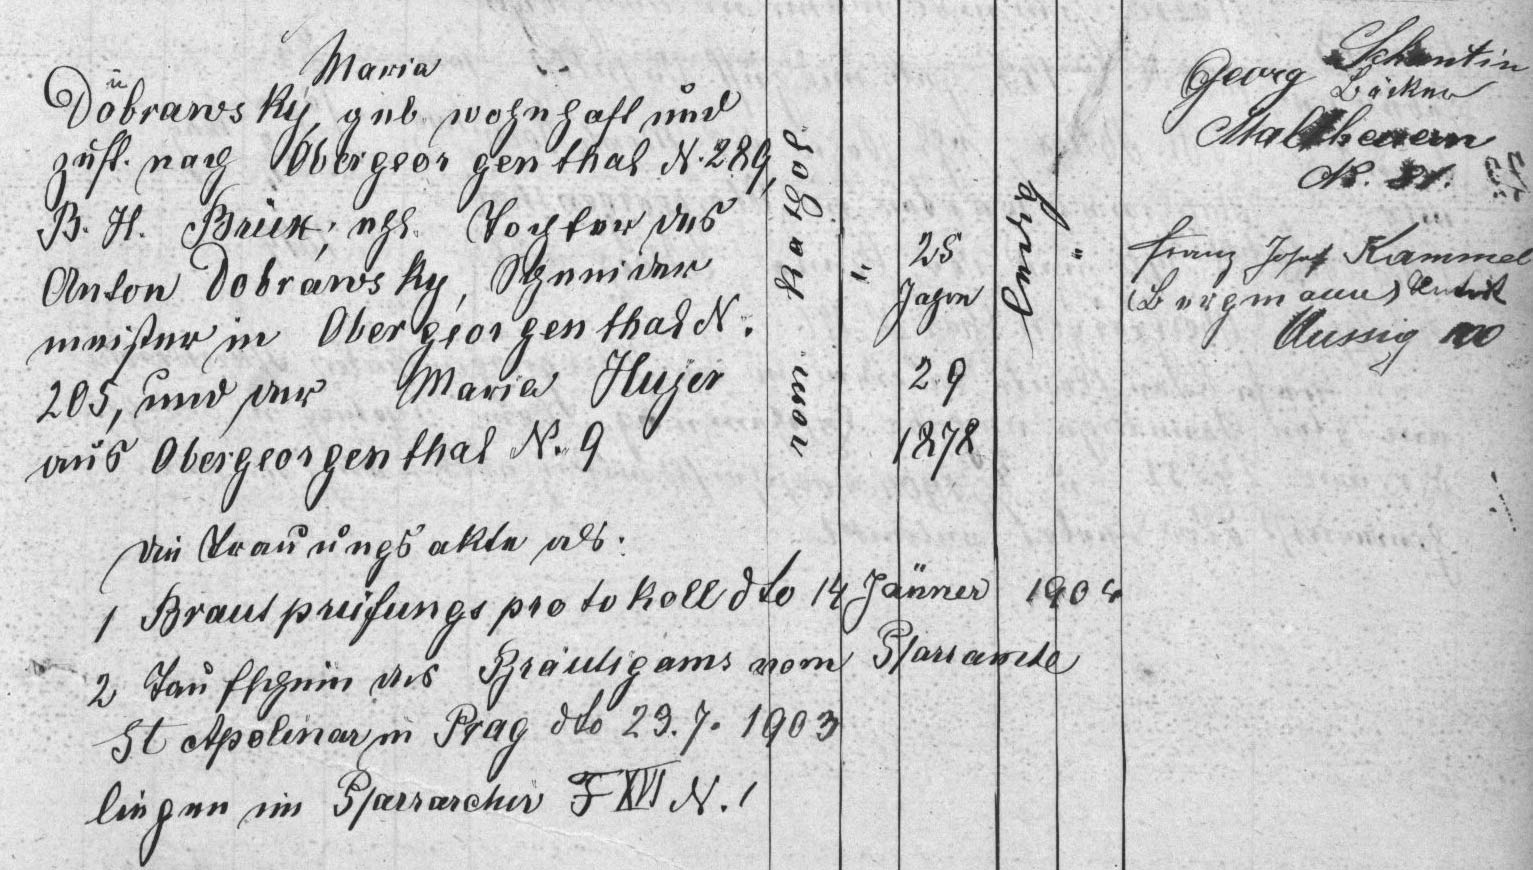 Maria
Dobrawsky, geb. wohnhaft und
zust. nach Obergeorgenthal N. 289,
B. H. Brüx, ehl. Tochter des
Anton Dobrawsky, Schneider
meister in Obergeorgenthal N.
205, und der Maria Hujer
aus Obergeorgenthal N. 9
die Trauungsakte als:
1 Brautprüfungsprotokoll dto 14 Jänner 1904
2 Taufschein des Bräutigams vom Pfarramte
St Apolinar in Prag dto 23. 7. 1903
liegen im Pfarrarchiv F XVI N. 1
"
25
Jahre
29
1878
ledig
"
Georg
Bäcker
N.
Franz Josef Kammel
(Bergmann)
Aussig